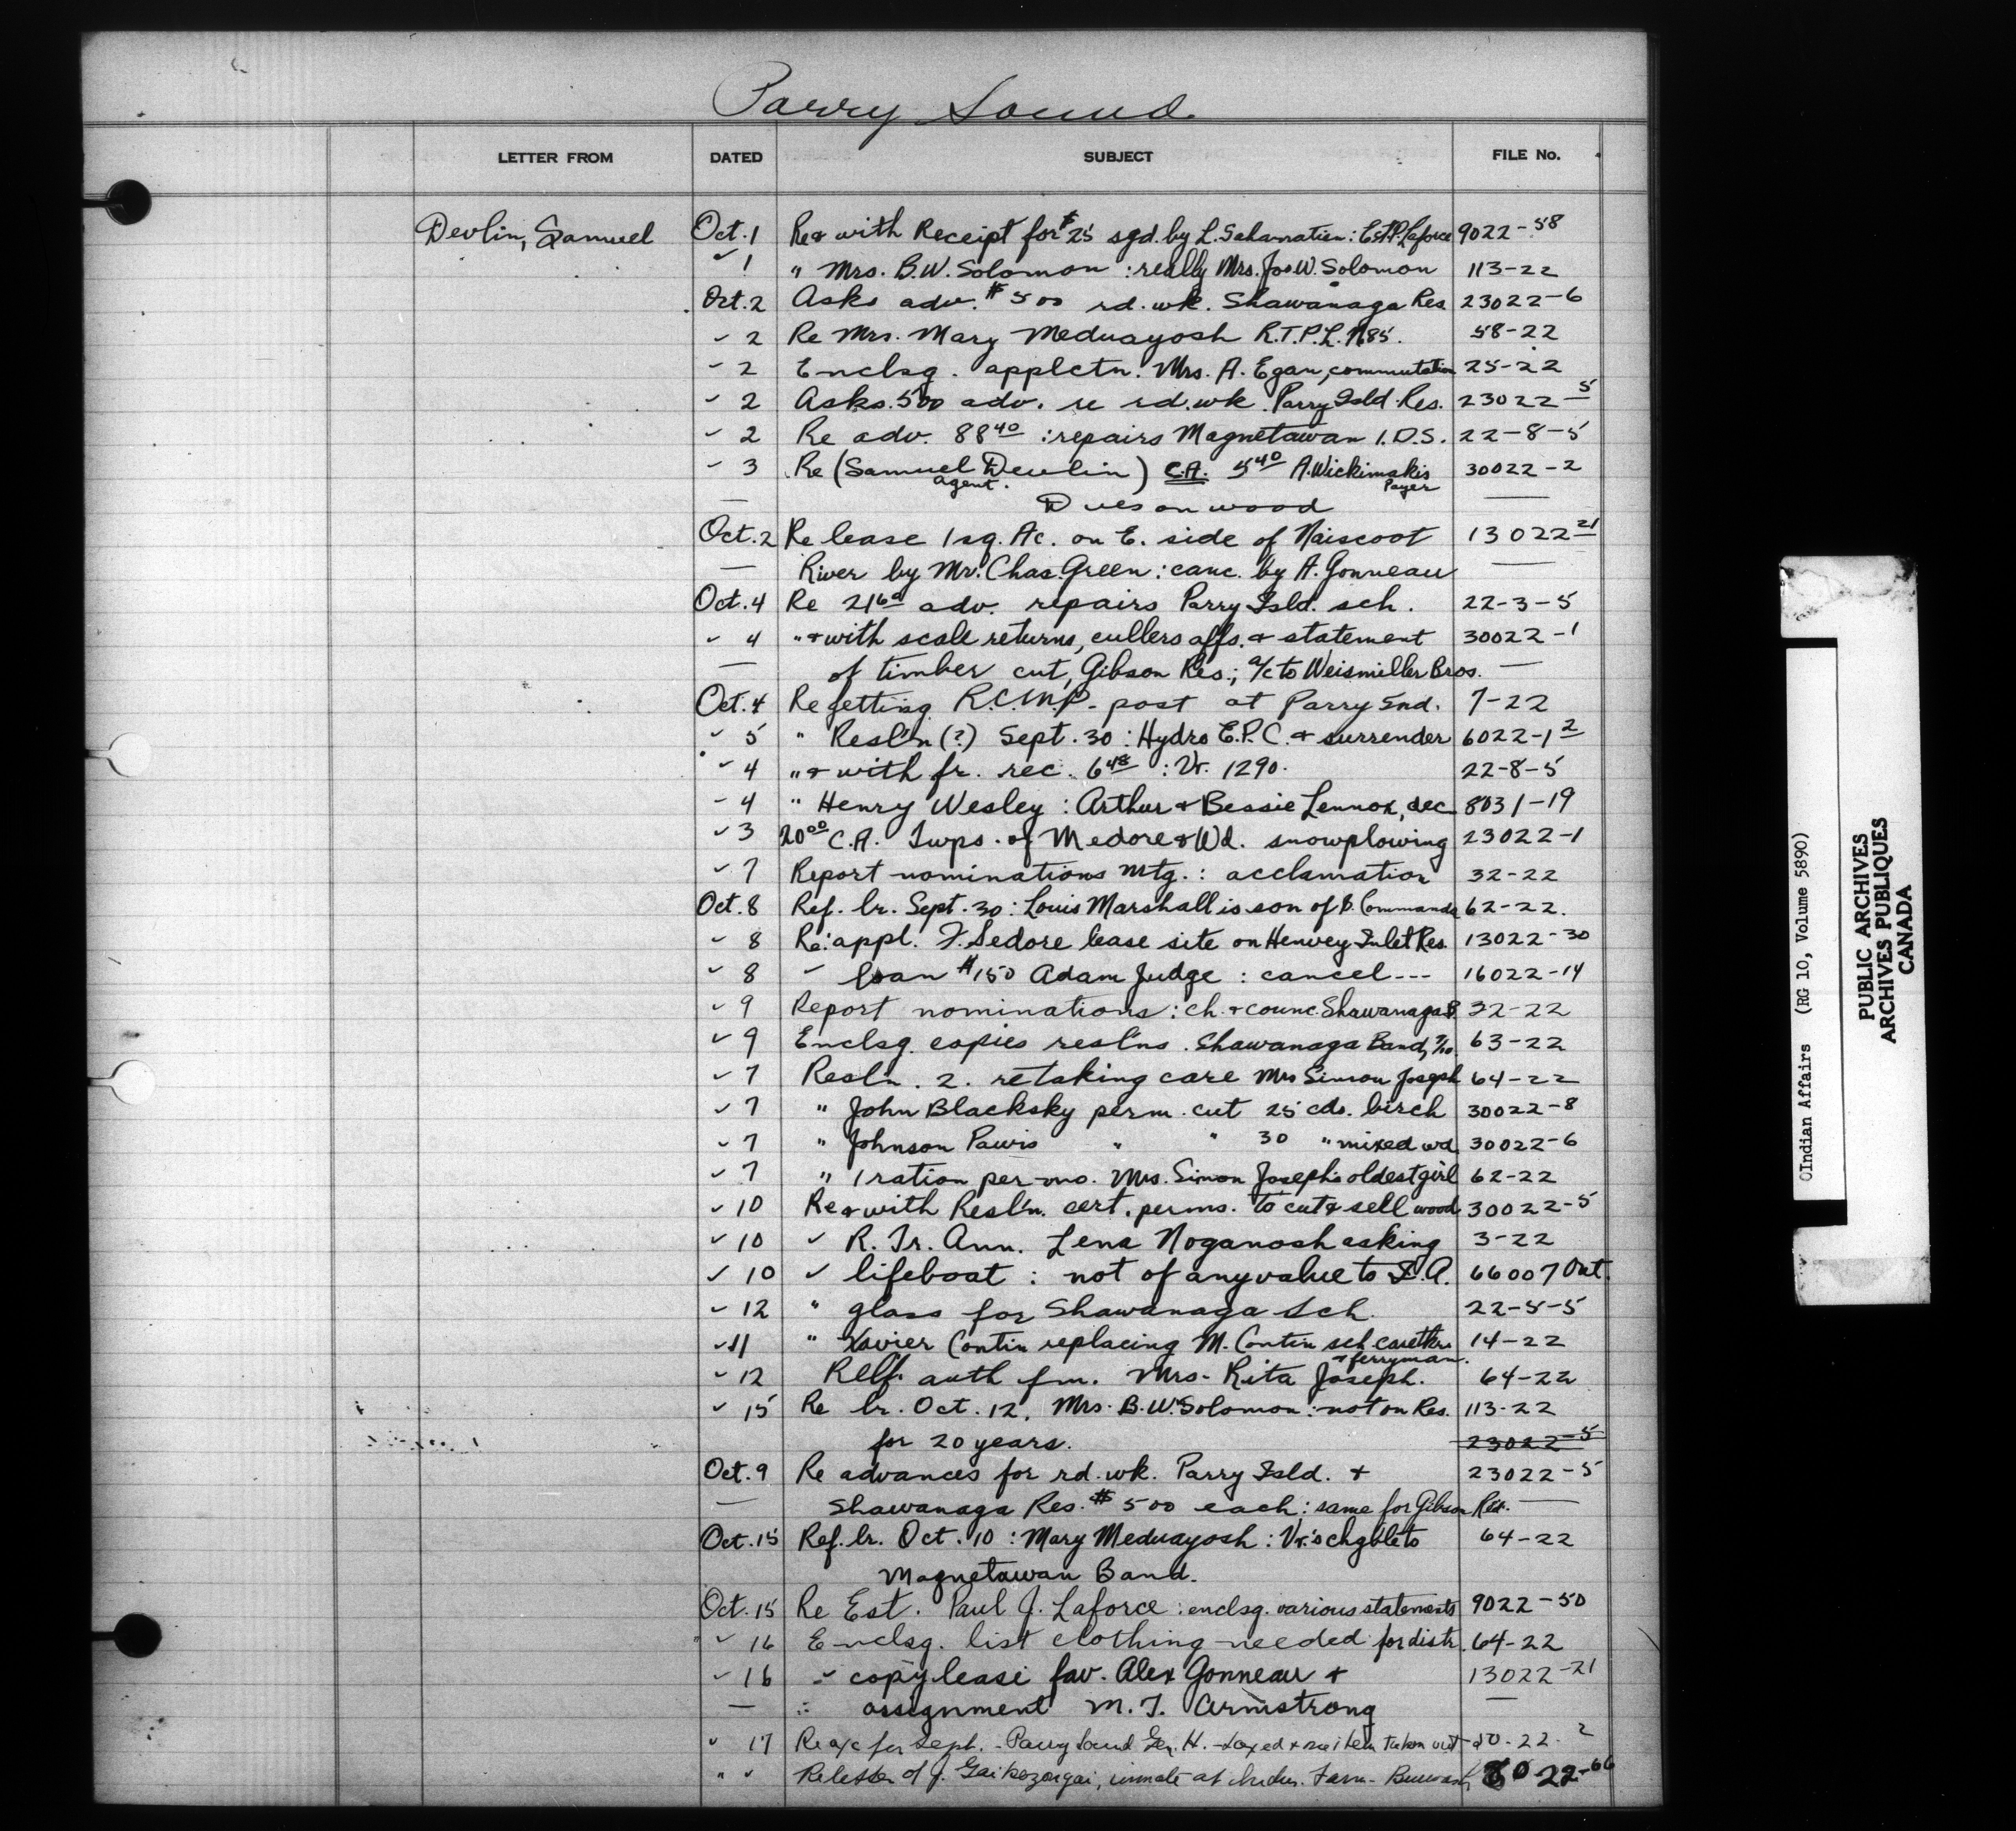 Parry Sound
LETTER FROM DATED SUBJECT FILE No.
Devlin, Samuel Oct. 1 Re & with Receipt for $25 sgd. by L. : Est. P. Laforce 9022-58
" 1 " Mrs. B.W. Solomon : really Mrs. Jos W. Solomon 113-22
Oct. 2 Asks adv. $500 rd. wk. Shawanaga Res. 23022-6
" 2 Re Mrs. Mary Meduayosh R.T.P.L. 58-22
" 2 Enclsg. applctn. Mrs. A. Egan, commutation 25-22
" 2 Asks 500 adv. re rd. wk. Parry Isld. Res. 23022-5
" 2 Re adv. 88 40 : repairs Magnetawan I.D.S. 22-8-5
" 3 Re (Samuel Devlin) C.A. 5 40 A. Wickimskis 30022-2
agent. Payer
— Dues on wood —
Oct. 2 Re lease 1 sq. Ac. on E. side of Naiscoot 13022-21
— River by Mr. Chas. Green : canc. by A. Gonneau —
Oct. 4 Re adv. repairs Parry Isld. sch. 22-3-5
" 4 " & with scale returns, cullers affs. & statement 30022-1
— of timber cut, Gibson Res.; a/c to Weismiller Bros. —
Oct. 4 Re getting R.C.M.P. post at Parry Snd. 7-22
" 5 " Resl'n (?) Sept. 30 : Hydro E.P.C. & surrender 6022-1 2
" 4 " & with fr. rec. 6 48 : Vr. 1290. 22-8-5
" 4 " Henry Wesley : Arthur & Bessie Lennox, dec 8031-19
" 3 20 00 C.A. Twps. of Medore & Wd. snowplowing 23022-1
" 7 Report nominations mtg. : acclamation 32-22
Oct. 8 Ref. lr. Sept. 30 : Louis Marshall is son of B. Commanda 62-22.
" 8 Re: appl. F. Sedore lease site on Henvey Inlet Res. 13022-30
" 8 " loan $150 Adam Judge : cancel--- 16022-14
" 9 Report nominations : ch. & counc. Shawanaga B 32-22
" 9 Enclsg. copies resl'ns. Shawanaga Band, 7/10. 63-22
" 7 Resl'n. 2. re taking care Mrs Simon Joseph 64-22
" 7 " John Blacksky perm. cut 25 cds. birch 30022-8
" 7 " Johnson Pawis " " 30 " mixed wd. 30022-6
" 7 " 1 ration per mo. Mrs. Simon Joseph's oldest girl 62-22
" 10 Re & with Resl'n. cert. perms. to cut & sell wood 30022-5
" 10 " R. Tr. Ann. Lena Noganosh asking 3-22
" 10 " lifeboat : not of any value to I.A. 66007 Ont.
" 12 " glass for Shawanaga Sch. 22-5-5
" 11 " Xavier Contin replacing M. Contin sch. caretkr 14-22
& ferryman.
" 12 Relf. auth fm. Mrs. Rita Joseph. 64-22
" 15 Re lr. Oct. 12. Mrs. B.W. Solomon : not on Res. 113-22
for 20 years. 23022-5
Oct. 9 Re advances for rd. wk. Parry Isld. & 23022-5
— Shawanaga Res. $500 each : same for Gibson Res. —
Oct. 15 Ref. lr. Oct. 10 : Mary Meduayosh : Vr.'s chgble to 64-22
Magnetawan Band.
Oct. 15 Re Est. Paul J. Laforce : enclsg. various statements 9022-50
" 16 Enclsg. list clothing needed for distr. 64-22
" 16 " copy lease fav. Alex Gonneau & 13022-21
— " assignment M.T. Armstrong —
" 17 Re a/c for Sept. - Parry Sound Gen. H. - taxed & item taken out 22-2
" " Re letter of J. , inmate at Indus. Farm - Burwash 22-66
Indian Affairs (RG 10, Volume 5890)
PUBLIC ARCHIVES
ARCHIVES PUBLIQUES
CANADA